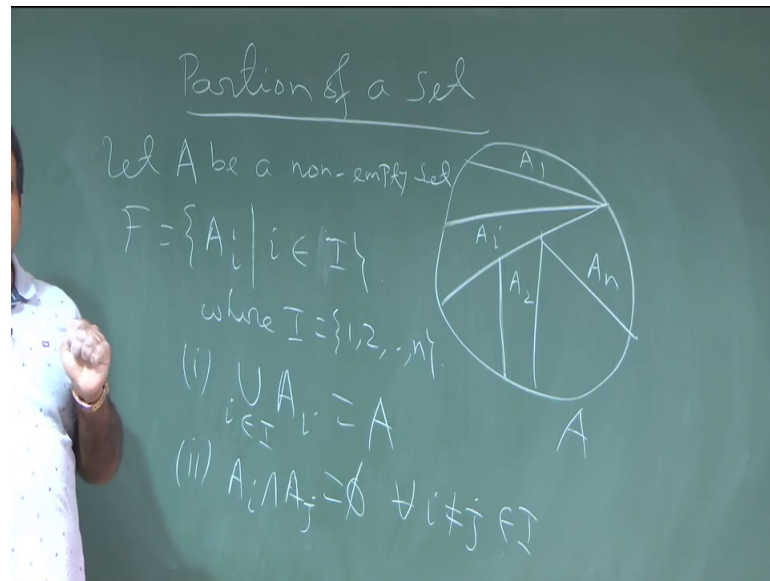 Partion of a set
Let A be a non-empty set
F = {A_i | i ∈ I}
where I = {1,2,..,n}.
(i) ∪_{i∈I} A_i = A
(ii) A_i ∩ A_j = ∅ ∀ i ≠ j ∈ I
A_1
A_i
A_2
A_n
A